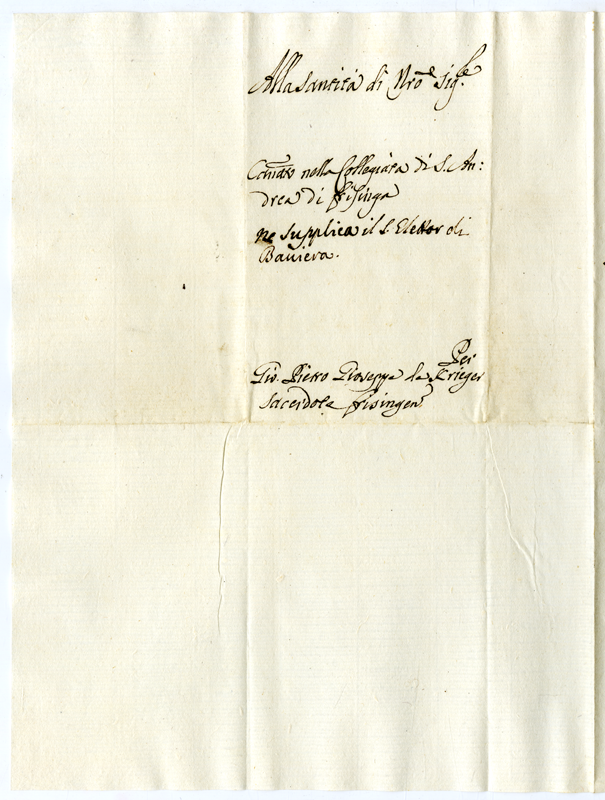 Alla Santità di Nro Sigre
Canto nella Collegiata di S. An:
drea di frisinga
ne supplica il S. Elettor di
Baviera.
Per
Gio. Pietro Gioseppe de Krieger
Sacerdote frisingen